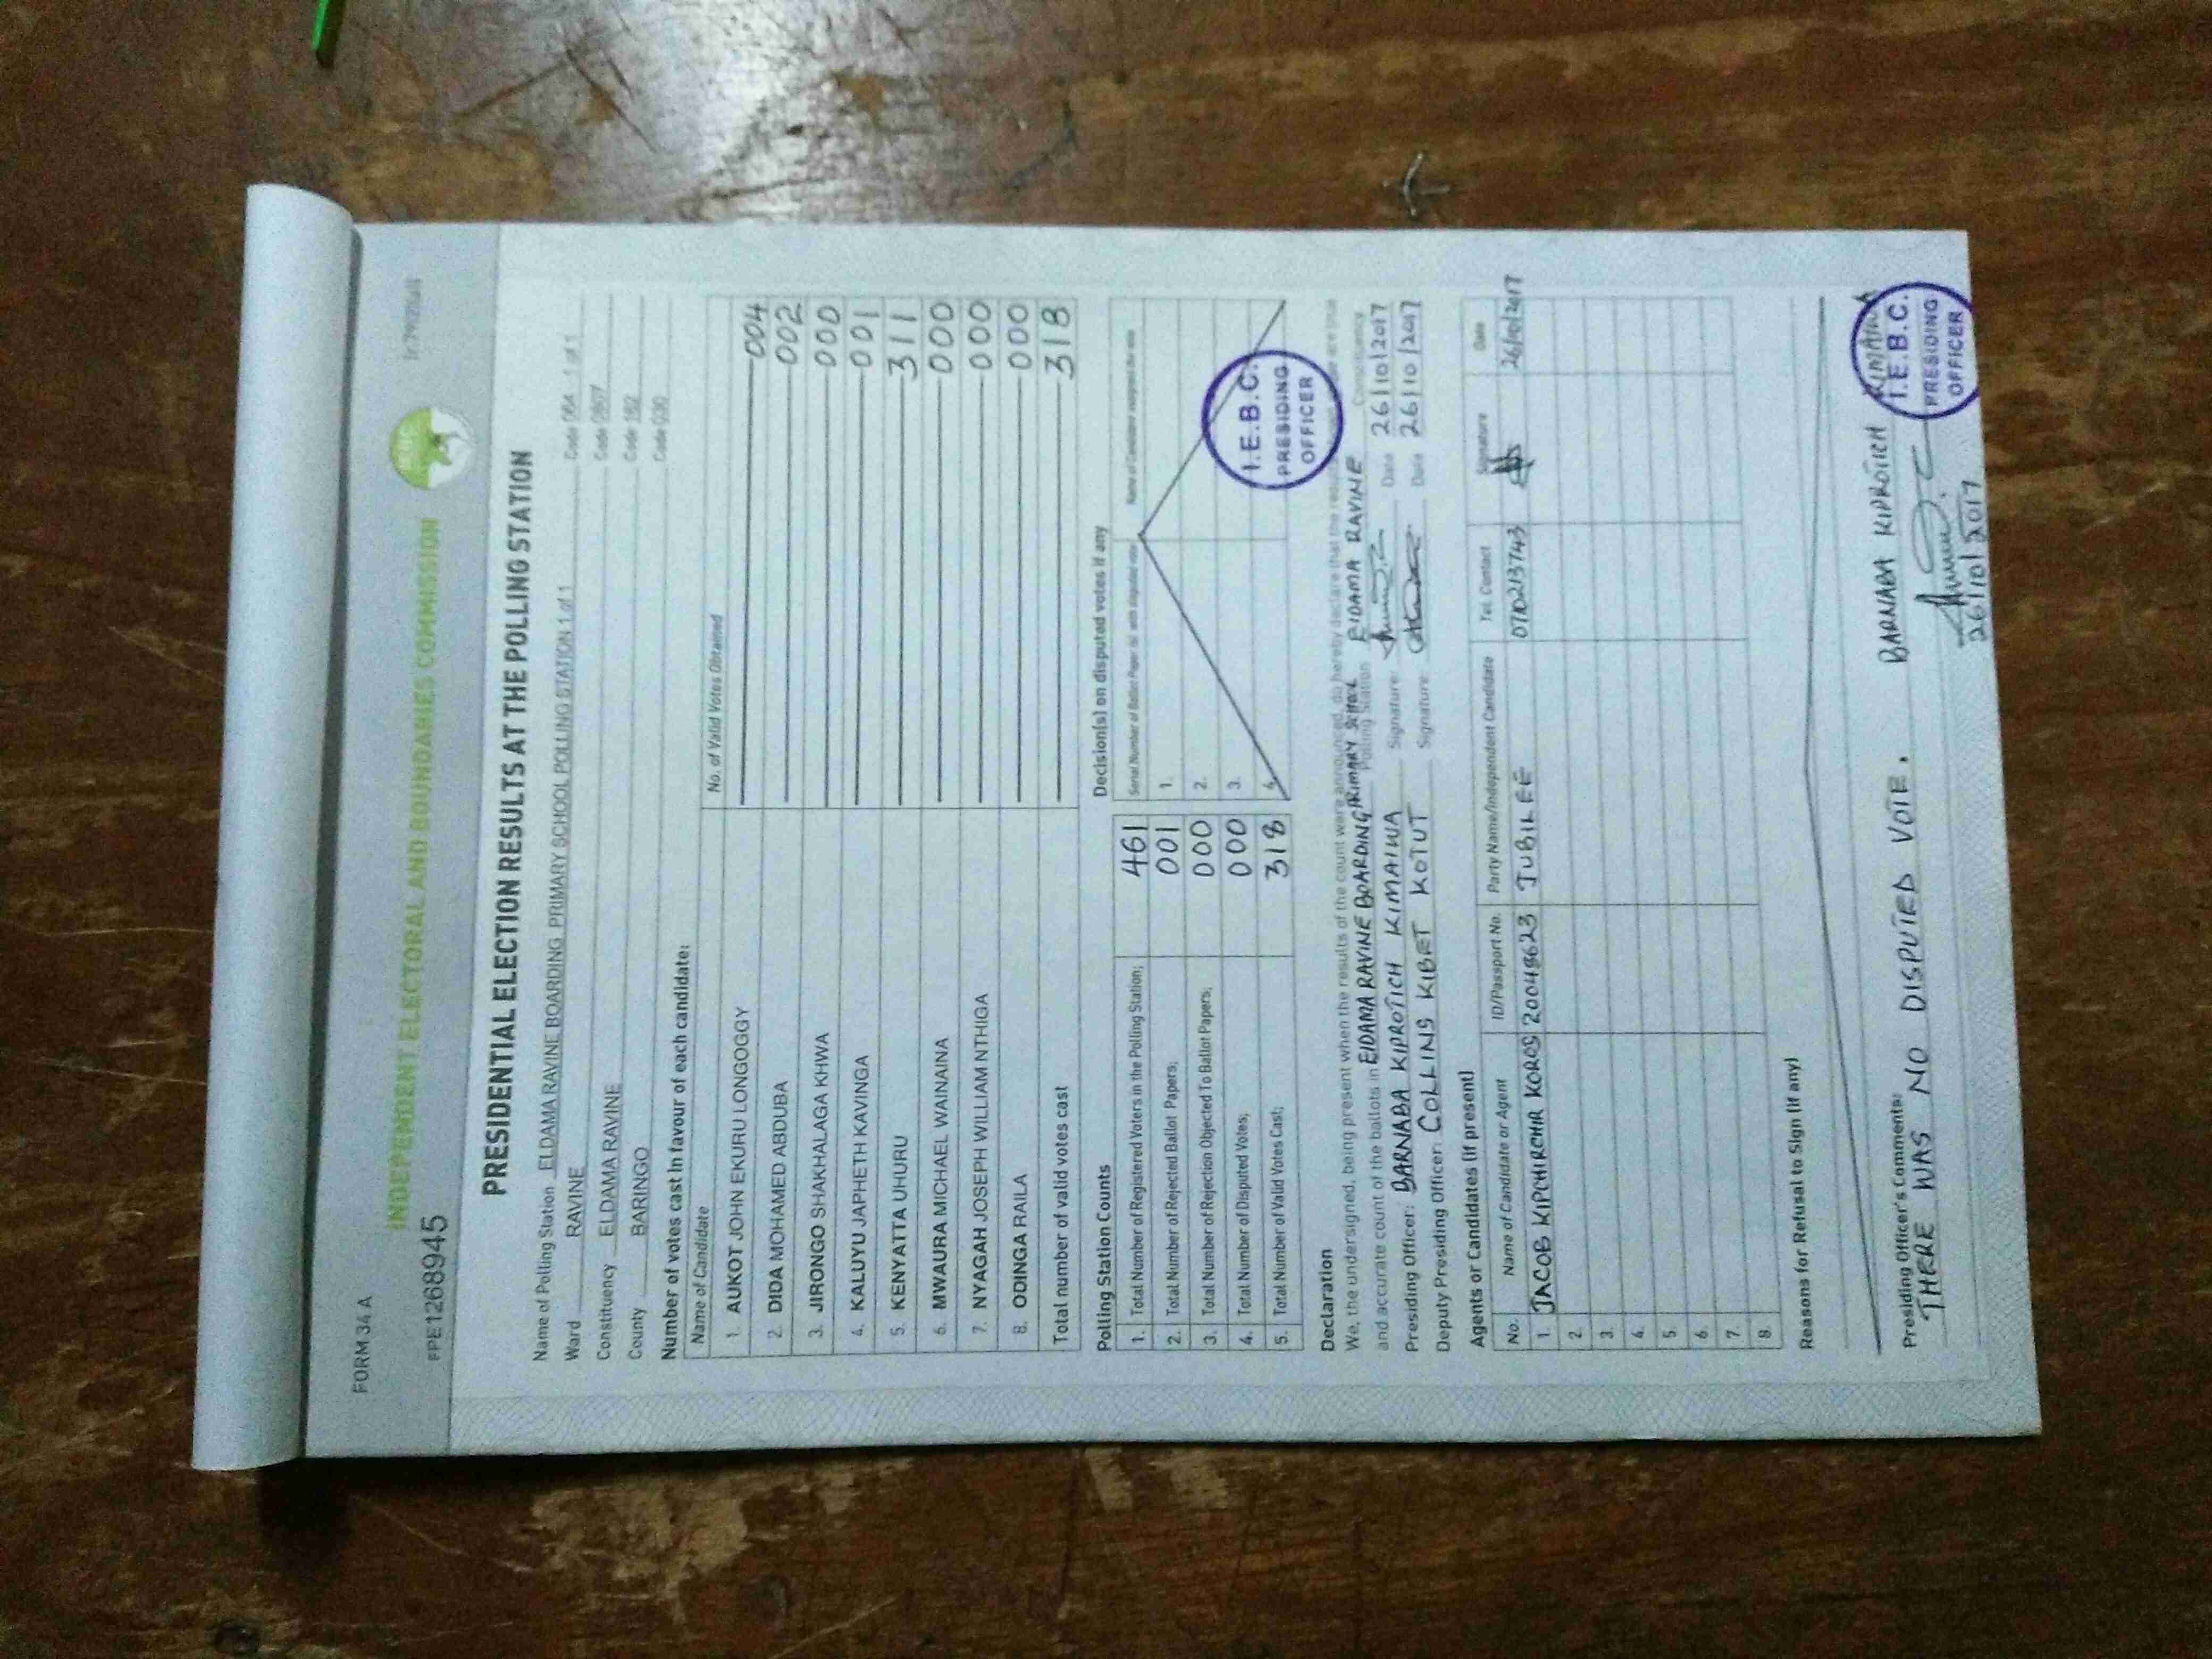 FORM 34 A
INDEPENDENT ELECTORAL AND BOUNDARIES COMMISSION
FPE1268945
PRESIDENTIAL ELECTION RESULTS AT THE POLLING STATION
Name of Polling Station ELDAMA RAVINE BOARDING PRIMARY SCHOOL POLLING STATION 1 of 1 Code 064 - 1 of 1
Ward RAVINE Code 0807
Constituency ELDAMA RAVINE Code 162
County BARINGO Code 030
Number of votes cast in favour of each candidate:
Name of Candidate No. of Valid Votes Obtained
1. AUKOT JOHN EKURU LONGOGGY 004
2. DIDA MOHAMED ABDUBA 002
3. JIRONGO SHAKHALAGA KHWA 000
4. KALUYU JAPHETH KAVINGA 001
5. KENYATTA UHURU 311
6. MWAURA MICHAEL WAINAINA 000
7. NYAGAH JOSEPH WILLIAM NTHIGA 000
8. ODINGA RAILA 000
Total number of valid votes cast 318
Polling Station Counts Decision(s) on disputed votes if any
1. Total Number of Registered Voters in the Polling Station; 461
2. Total Number of Rejected Ballot Papers; 001 1.
3. Total Number of Rejection Objected To Ballot Papers; 000 2.
4. Total Number of Disputed Votes; 000 3.
5. Total Number of Valid Votes Cast; 318 4.
I.E.B.C.
PRESIDING
OFFICER
Declaration
We, the undersigned, being present when the results of the count were announced, do hereby declare that the
and accurate count of the ballots in ElDAMA RAVINE BOARDING PRIMARY Polling Station ElDAMA RAVINE Constituency
Presiding Officer: BARNABA KIPROTICH KIMAIWA Signature: Date 26/10/2017
Deputy Presiding Officer: COLLINS KIBET KOTUT Signature: Date 26/10/2017
Agents or Candidates (if present)
No. Name of Candidate or Agent ID/Passport No. Party Name/Independent Candidate Tel. Contact Signature Date
1. JACOB KIPCHIRCHIR KOROS 20048623 JUBILEE 0710213743 26/10/2017
2.
3.
4.
5.
6.
7.
8.
Reasons for Refusal to Sign (if any)
Presiding Officer's Comments:
THERE WAS NO DISPUTED VOTE. BARNABA KIPROTICH
26/10/2017
I.E.B.C.
PRESIDING
OFFICER